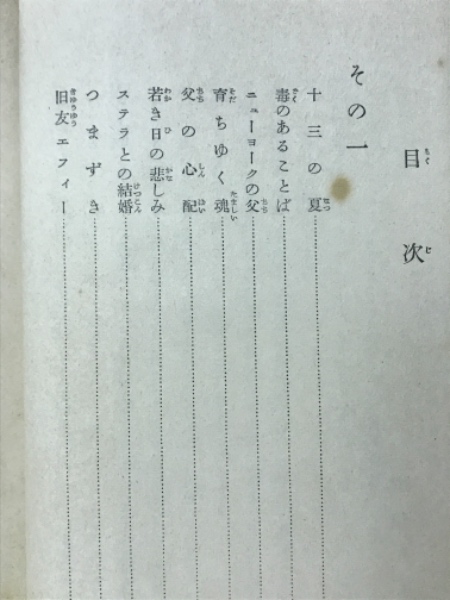 目次
その一
十三の夏
毒のあることば
ニューヨークの父
育ちゆく魂
父の心配
若き日の悲しみ
ステラとの結婚
つまずき
旧友エフィー